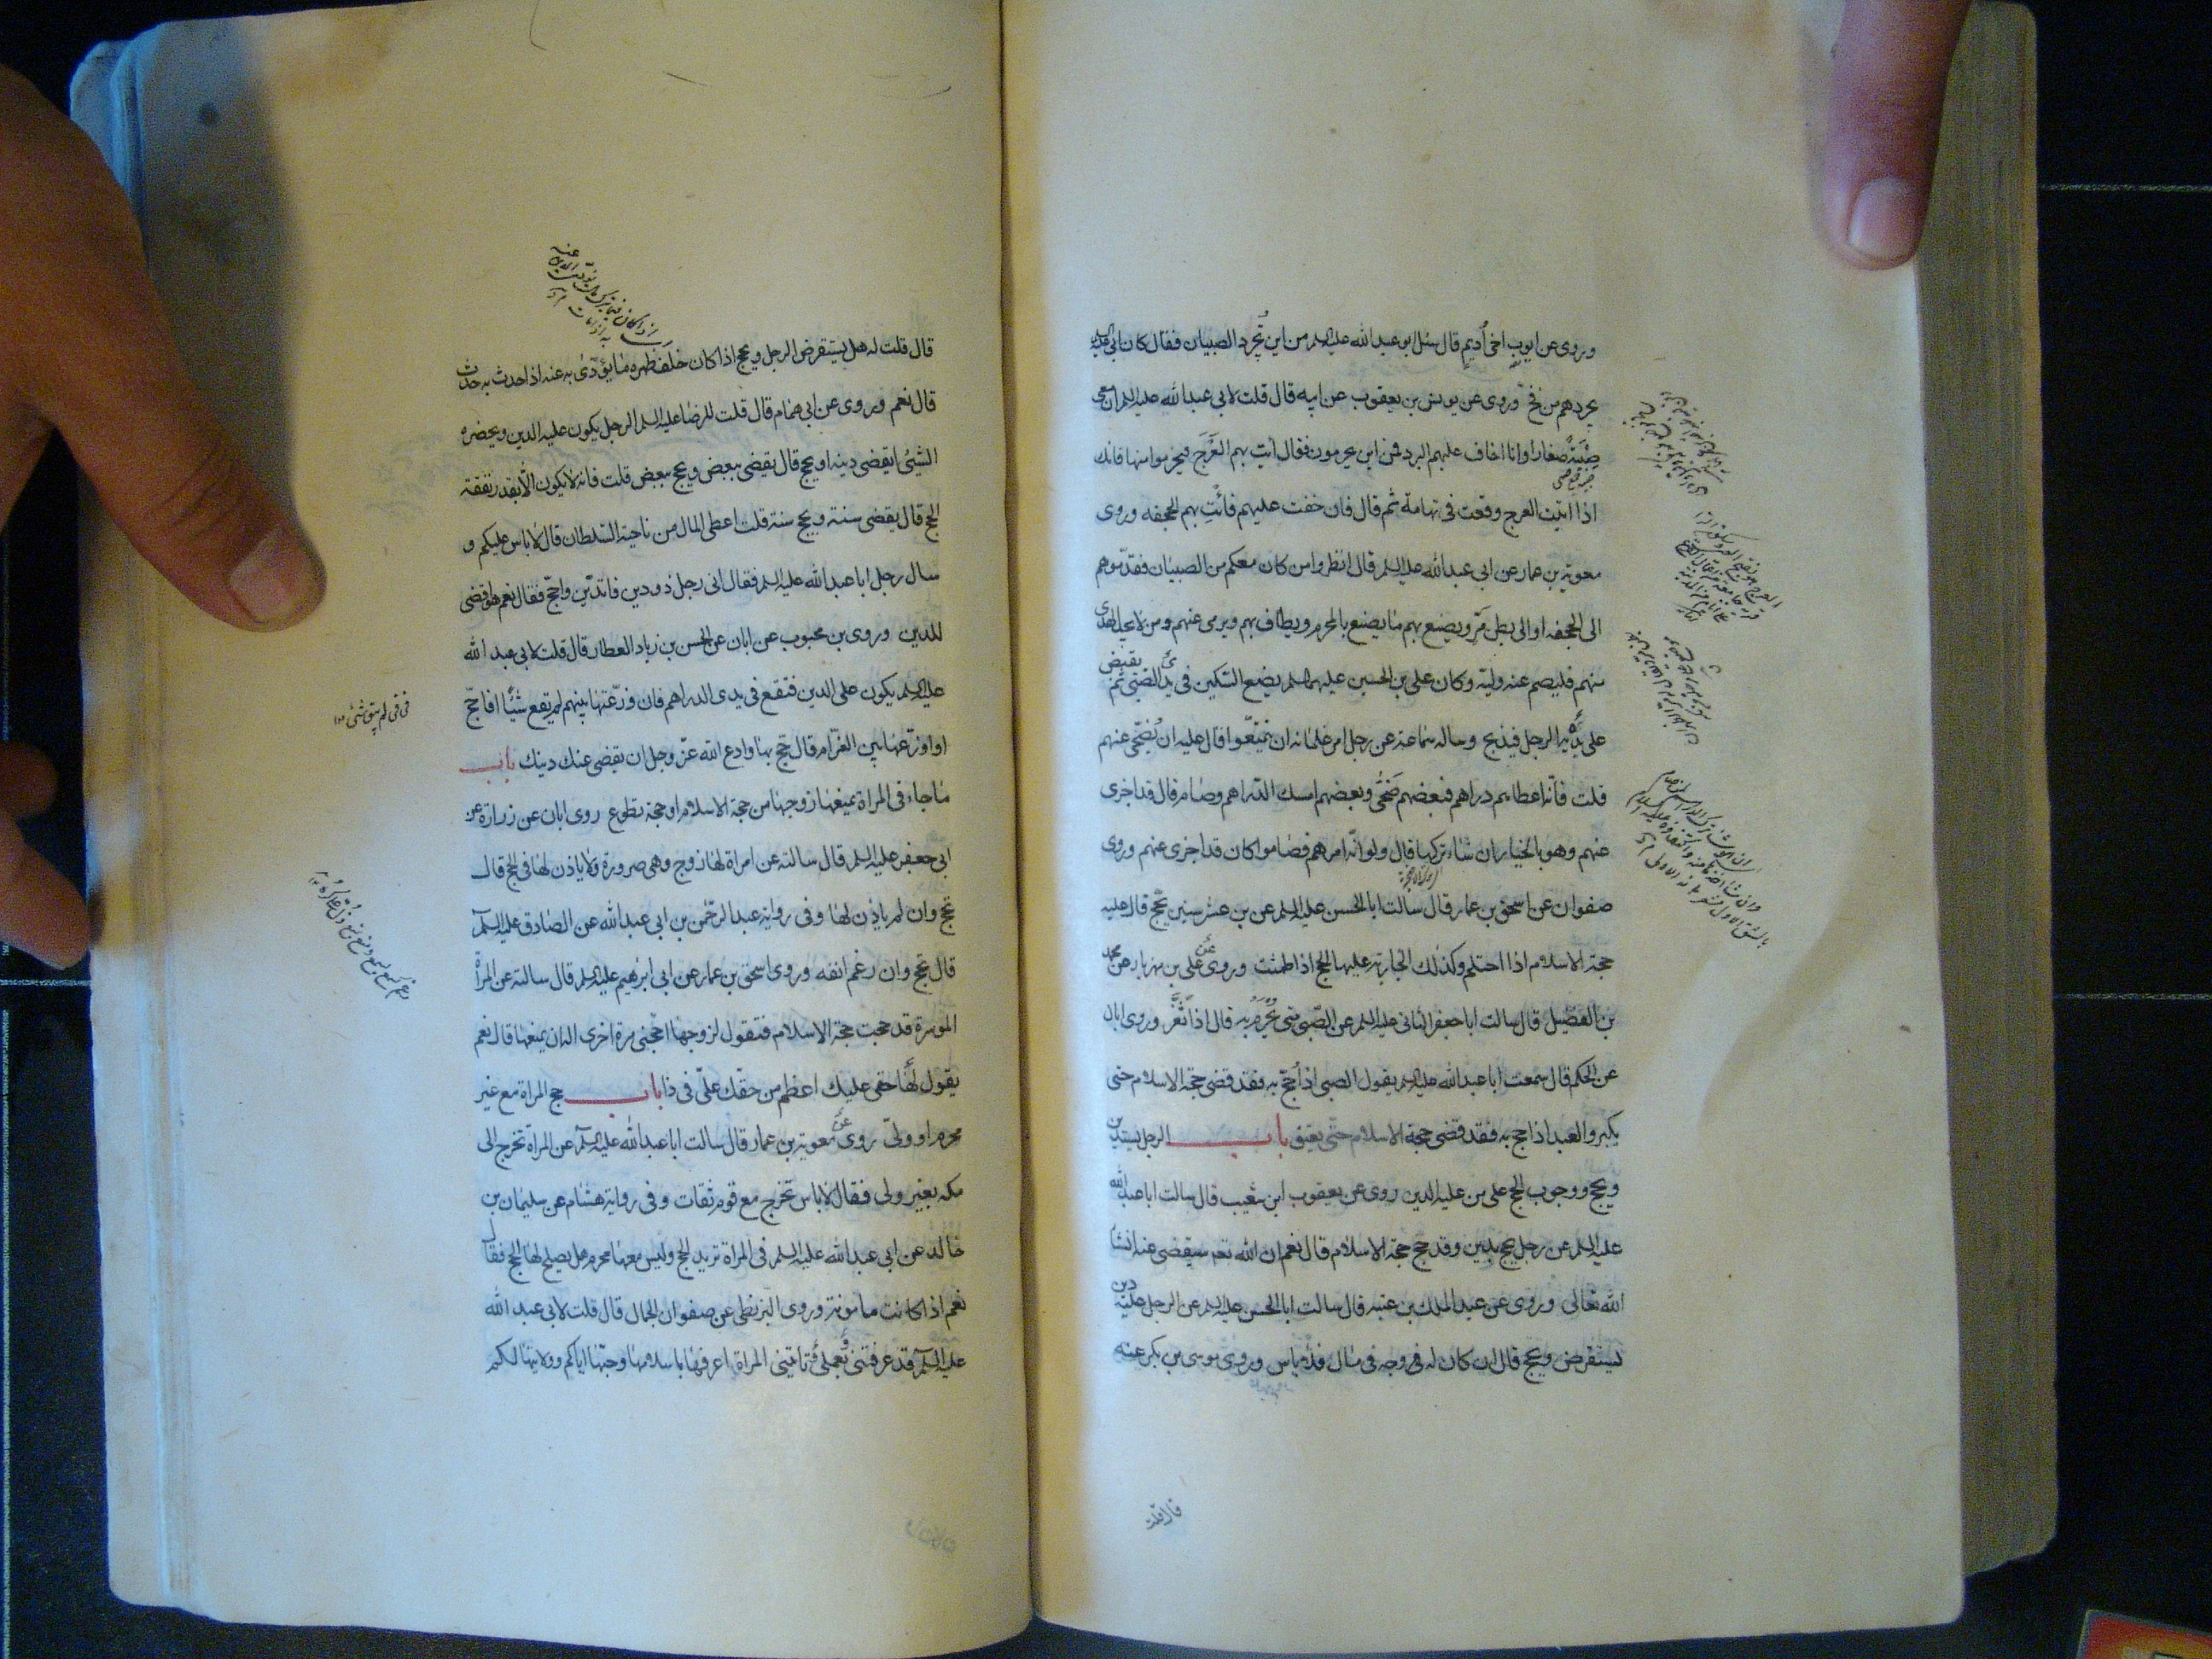 وروى عن ايوب اخى أُديم قال سئل ابو عبد الله عليه السلم من اين تُجرد الصبيان فقال كان ابى عليه السلم
يجردهم من فخ وروى عن يونس بن يعقوب عن ابيه قال قلت لابى عبد الله عليه السلم ان معى
صِبْيَةً صغارا وانا اخاف عليهم البرد فمن اين يحرمون فقال ائت بهم العَرْجَ فيحرموا منها فانك
اذا اتيت العرج وقعت فى تهامة ثم قال فان خفت عليهم فائْتِ بهم الجحفه وروى
معوية بن عمار عن ابى عبد الله عليه السلم قال انظروا من كان معكم من الصبيان فقدّموهم
الى الجحفه او الى بطن مَرّ ويصنع بهم ما يصنع بالمحرم ويطاف بهم ويرمى عنهم ومن لا يجد الهدى
منهم فليصم عنه وليّه وكان على بن الحسين عليهما السلم يضع السّكين فى يد الصّبىّ ثم يقبض
على يديه الرجل فيذبح وساله سماعة عن رجل امر غلمانه ان يتمتعّوا قال عليه ان يُضحّى عنهم
قلت فانّه اعطاهم دراهم فبعضهم ضَحّى وبعضهم امسك الدّراهم وصام قال قد اجزى
عنهم وهو بالخيار ان شاء تركها قال ولو انّه امرهم فصاموا كان قد اجزى عنهم وروى
صفوان عن اسحق بن عمار قال سالت ابا الحسن عليه السلم عن بن عشر سنين يحجّ قال عليه
حجة الاسلام اذا احتلم وكذلك الجارية عليها الحج اذا طمثت وروى عن على بن مهزيار عن محمد
بن الفضيل قال سالت ابا جعفر الثانى عليه السلم عن الصّبى متى يُحْرَمُ به قال اذا اثّغَرَ وروى ابان
عن الحكم قال سمعت ابا عبد الله عليه السلم يقول الصبى اذا حُجّ به فقد قضى حجة الاسلام حتى
يكبر والعبد اذا حج به فقد قضى حجة الاسلام حتّى يعتق باب الرجل يستدين
ويحج ووجوب الحج على من عليه الدين روى عن يعقوب ابن شعيب قال سالت ابا عبد الله
عليه السلم عن رجل يحج بدين وقد حج حجة الاسلام قال نعم ان الله تعم سيقضى عنه انشا
الله تعالى وروى عن عبد الملك بن عتبه قال سالت ابا الحسن عليه السلم عن الرجل عليه دين
يستقرض ويحج قال ان كان له فى وجه فى مال فلا باس وروى موسى بن بكر عنه
قال قلت
قال قلت له هل يستقرض الرجل ويحج اذا كان خلف ظهره ما يؤدّى به عنه اذا حدث به حدث
قال نعم وروى عن ابى همام قال قلت للرضا عليه السلم الرجل يكون عليه الدين ويحضره
الشىء ايقضى دينه او يحج قال يقضى ببعض ويحج ببعض قلت فانه لا يكون الا بقدر نفقة
الحج قال يقضى سنة ويحج سنة قلت اعطى المال من ناحية السّلطان قال لا باس عليكم و
سال رجل ابا عبد الله عليه السلم فقال انى رجل ذو دين فاتديّن واحجّ فقال نعم هو اقضى
للدين وروى بن محبوب عن ابان عن الحسن بن زياد العطار قال قلت لابى عبد الله
عليه السلم يكون على الدين فتقع فى يدى الدراهم فان وزّعتها بينهم لم يقع شيئا افاحجّ
او اوزّعها بين الغرّام قال حجّ بها وادع الله عزّ وجل ان يقضى عنك دينك باب
ما جاء فى المراة يمنعها زوجها من حجة الاسلام او حجة تطوع روى ابان عن زرارة عن
ابى جعفر عليه السلم قال سالته عن امراة لها زوج وهى صرورة ولا ياذن لها فى الحج قال
تحج وان لم ياذن لها وفى رواية عبد الرحمن بن ابى عبد الله عن الصادق عليه السلم
قال تحج وان رغم انفه وروى اسحق بن عمار عن ابى ابرهيم عليه السلم قال سالته عن المراة
الموسرة قد حجت حجة الاسلام فتقول لزوجها احجنى مرة اخرى اله ان يمنعها قال نعم
يقول لها حقى عليك اعظم من حقك علىّ فى ذا باب حج المراة مع غير
محرم او ولىّ روى عن معوية بن عمار قال سالت ابا عبد الله عليه السلم عن المراة تخرج الى
مكه بغير ولى فقال لا باس تخرج مع قوم ثقات وفى رواية هشام عن سليمان بن
خالد عن ابى عبد الله عليه السلم فى المراة تريد الحج وليس معها محرم هل يصلح لها الحج فقال
نعم اذا كانت مامونة وروى البزنطى عن صفوان الجمال قال قلت لابى عبد الله
عليه السلم قد عرفتنى بعملى تاتينى المراة اعرفها باسلامها وحبّها اياكم وولايتها لكم